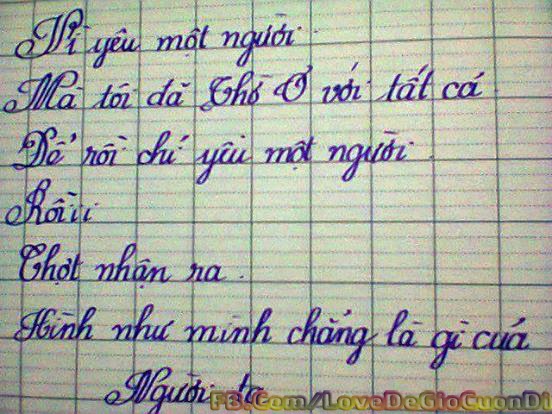 Vì yêu một người
Mà tôi đã Thờ Ơ với tất cả
Để rồi chỉ yêu một người
Rồiiii
Chợt nhận ra
Hình như mình chẳng là gì của
Người ta
FB.Com/LoveDeGioCuonDi